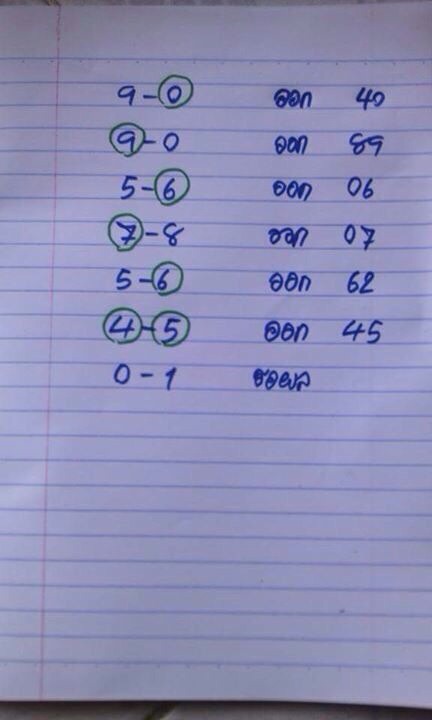 9-0 ออก 40
9-0 ออก 89
5-6 ออก 06
7-8 ออก 07
5-6 ออก 62
4-5 ออก 45
0-1 รอผล